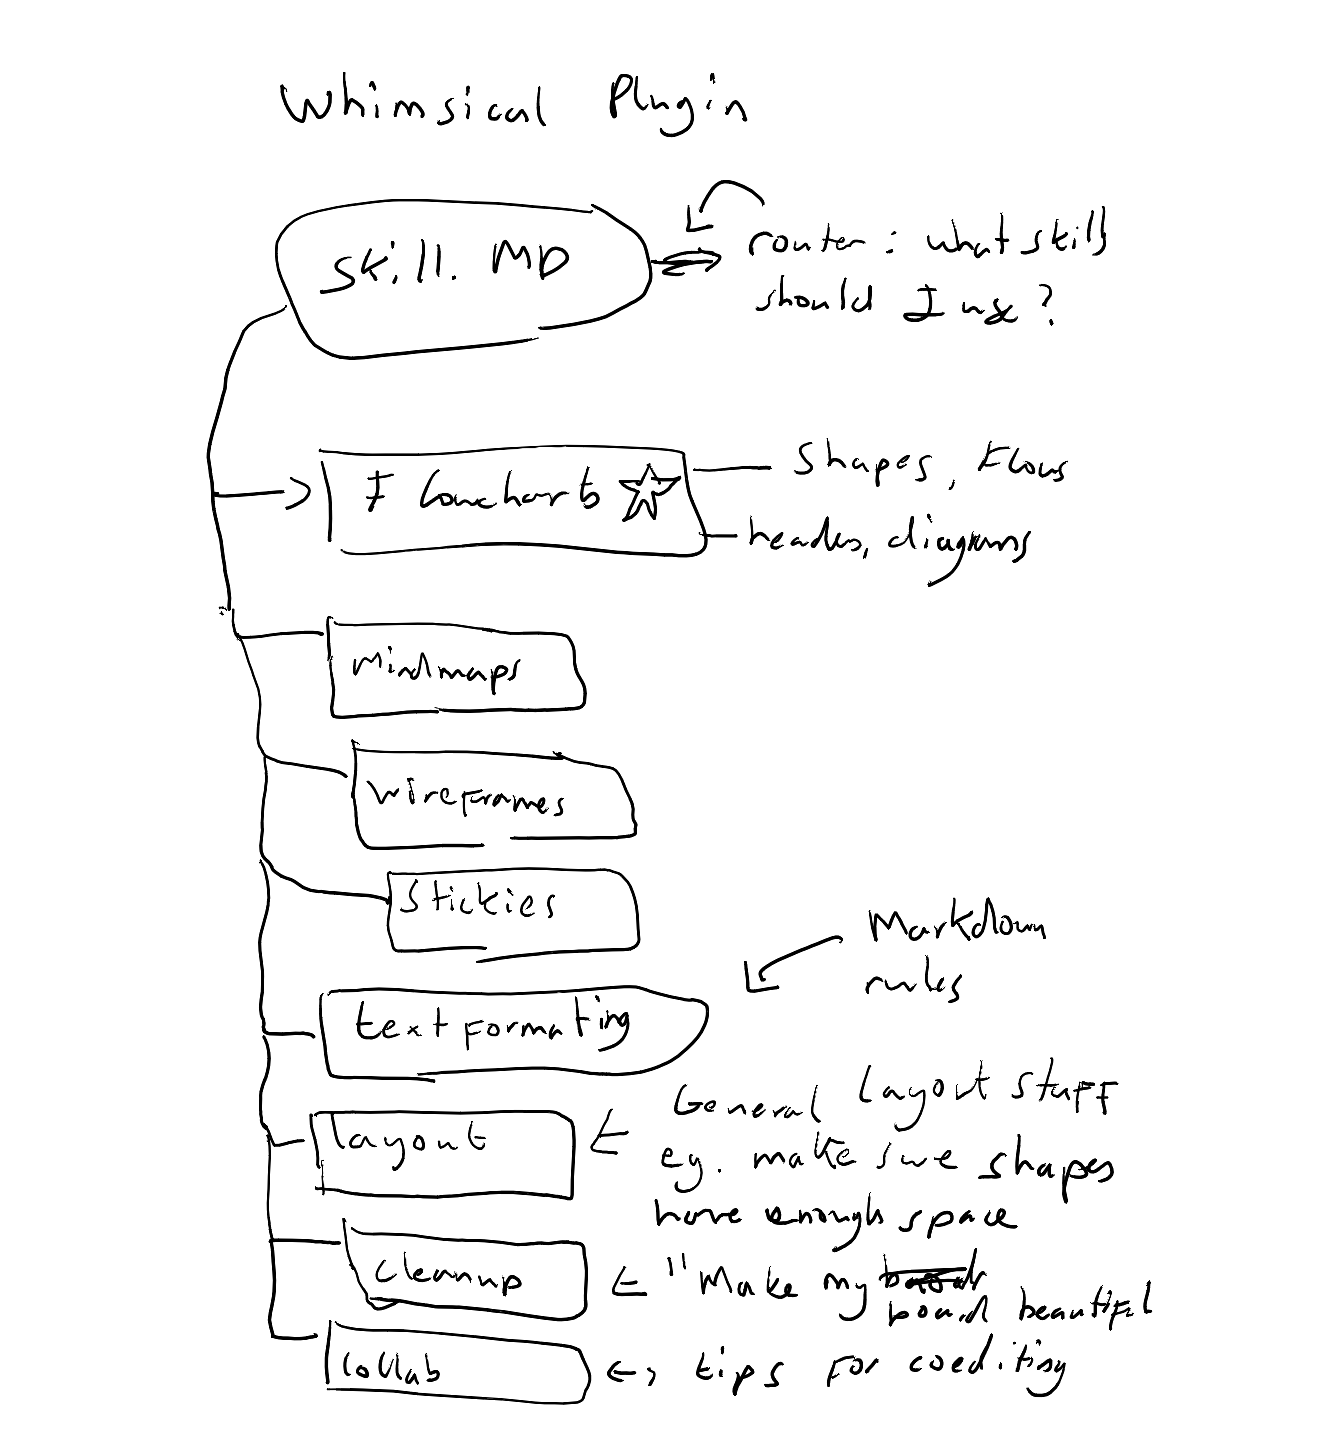 Whimsical Plugin
Skill.MD
router: what skill
should I use?
Flowcharts
Shapes, Flows
headers, diagrams
Mindmaps
Wireframes
Stickies
Markdown
rules
text formating
General Layout stuff
layout
eg. make sure shapes
have enough space
cleanup
"Make my
board beautiful
Collab
tips for coediting